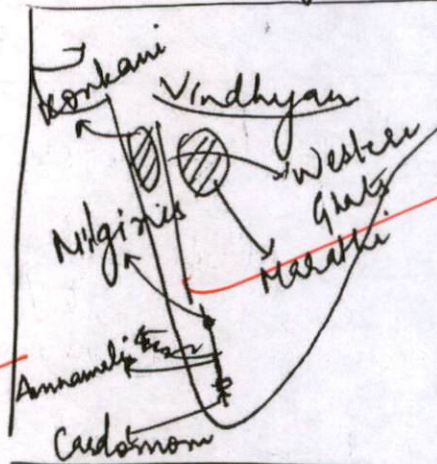 Konkani
Vindhyan
Western
Ghats
Nilgiris
Marathi
Annamalai
Cardomom